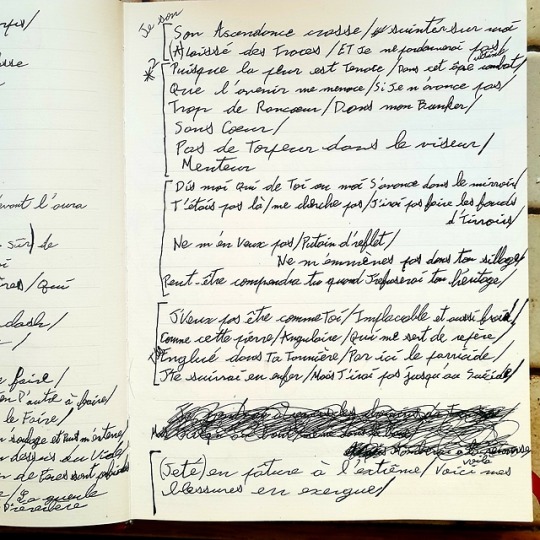 orfus/
sse
vant l'aura
sûr) de
oi
res / Qui
dash/
e faire/
en l'autre à boire/
le Foire/
n dessous du Vide/
La gueule
De son
Son Ascendance crasse / suinter sur moi
(A) laissé des Traces / ET Je ne pardonnerai pas/
? Puisque la peur est Tenace / Dans cet ultime combat/
* Que l'avenir me menace / Si Je n'avance pas/
Trop de Rancoeur / Dans mon Bunker/
Sans Coeur/
Pas de Torpeur dans le viseur/
Menteur
Dis moi qui de Toi ou moi S'avance dans le mirroir/
T'étais pas là / me cherche pas / J'irai pas faire les
d'tirroirs/
Ne m'en Veux pas / Putain d'reflet/
Ne m'emmènes pas dans ton sillage/
Peut-être comprendra tu quand J'refuserai ton héritage/
J'Veux pas être comme Toi / Implacable et aussi froid/
Comme cette pierre / Angulaire / Qui me sert de repère/
Englué dans Ta Tannière / Par ici le parricide/
J'te suivrai en enfer / Mais J'irai pas jusqu'au Suicide/
(Jeté) en pâture à l'extrême / Voici mes
voilà
blessures en exergue/